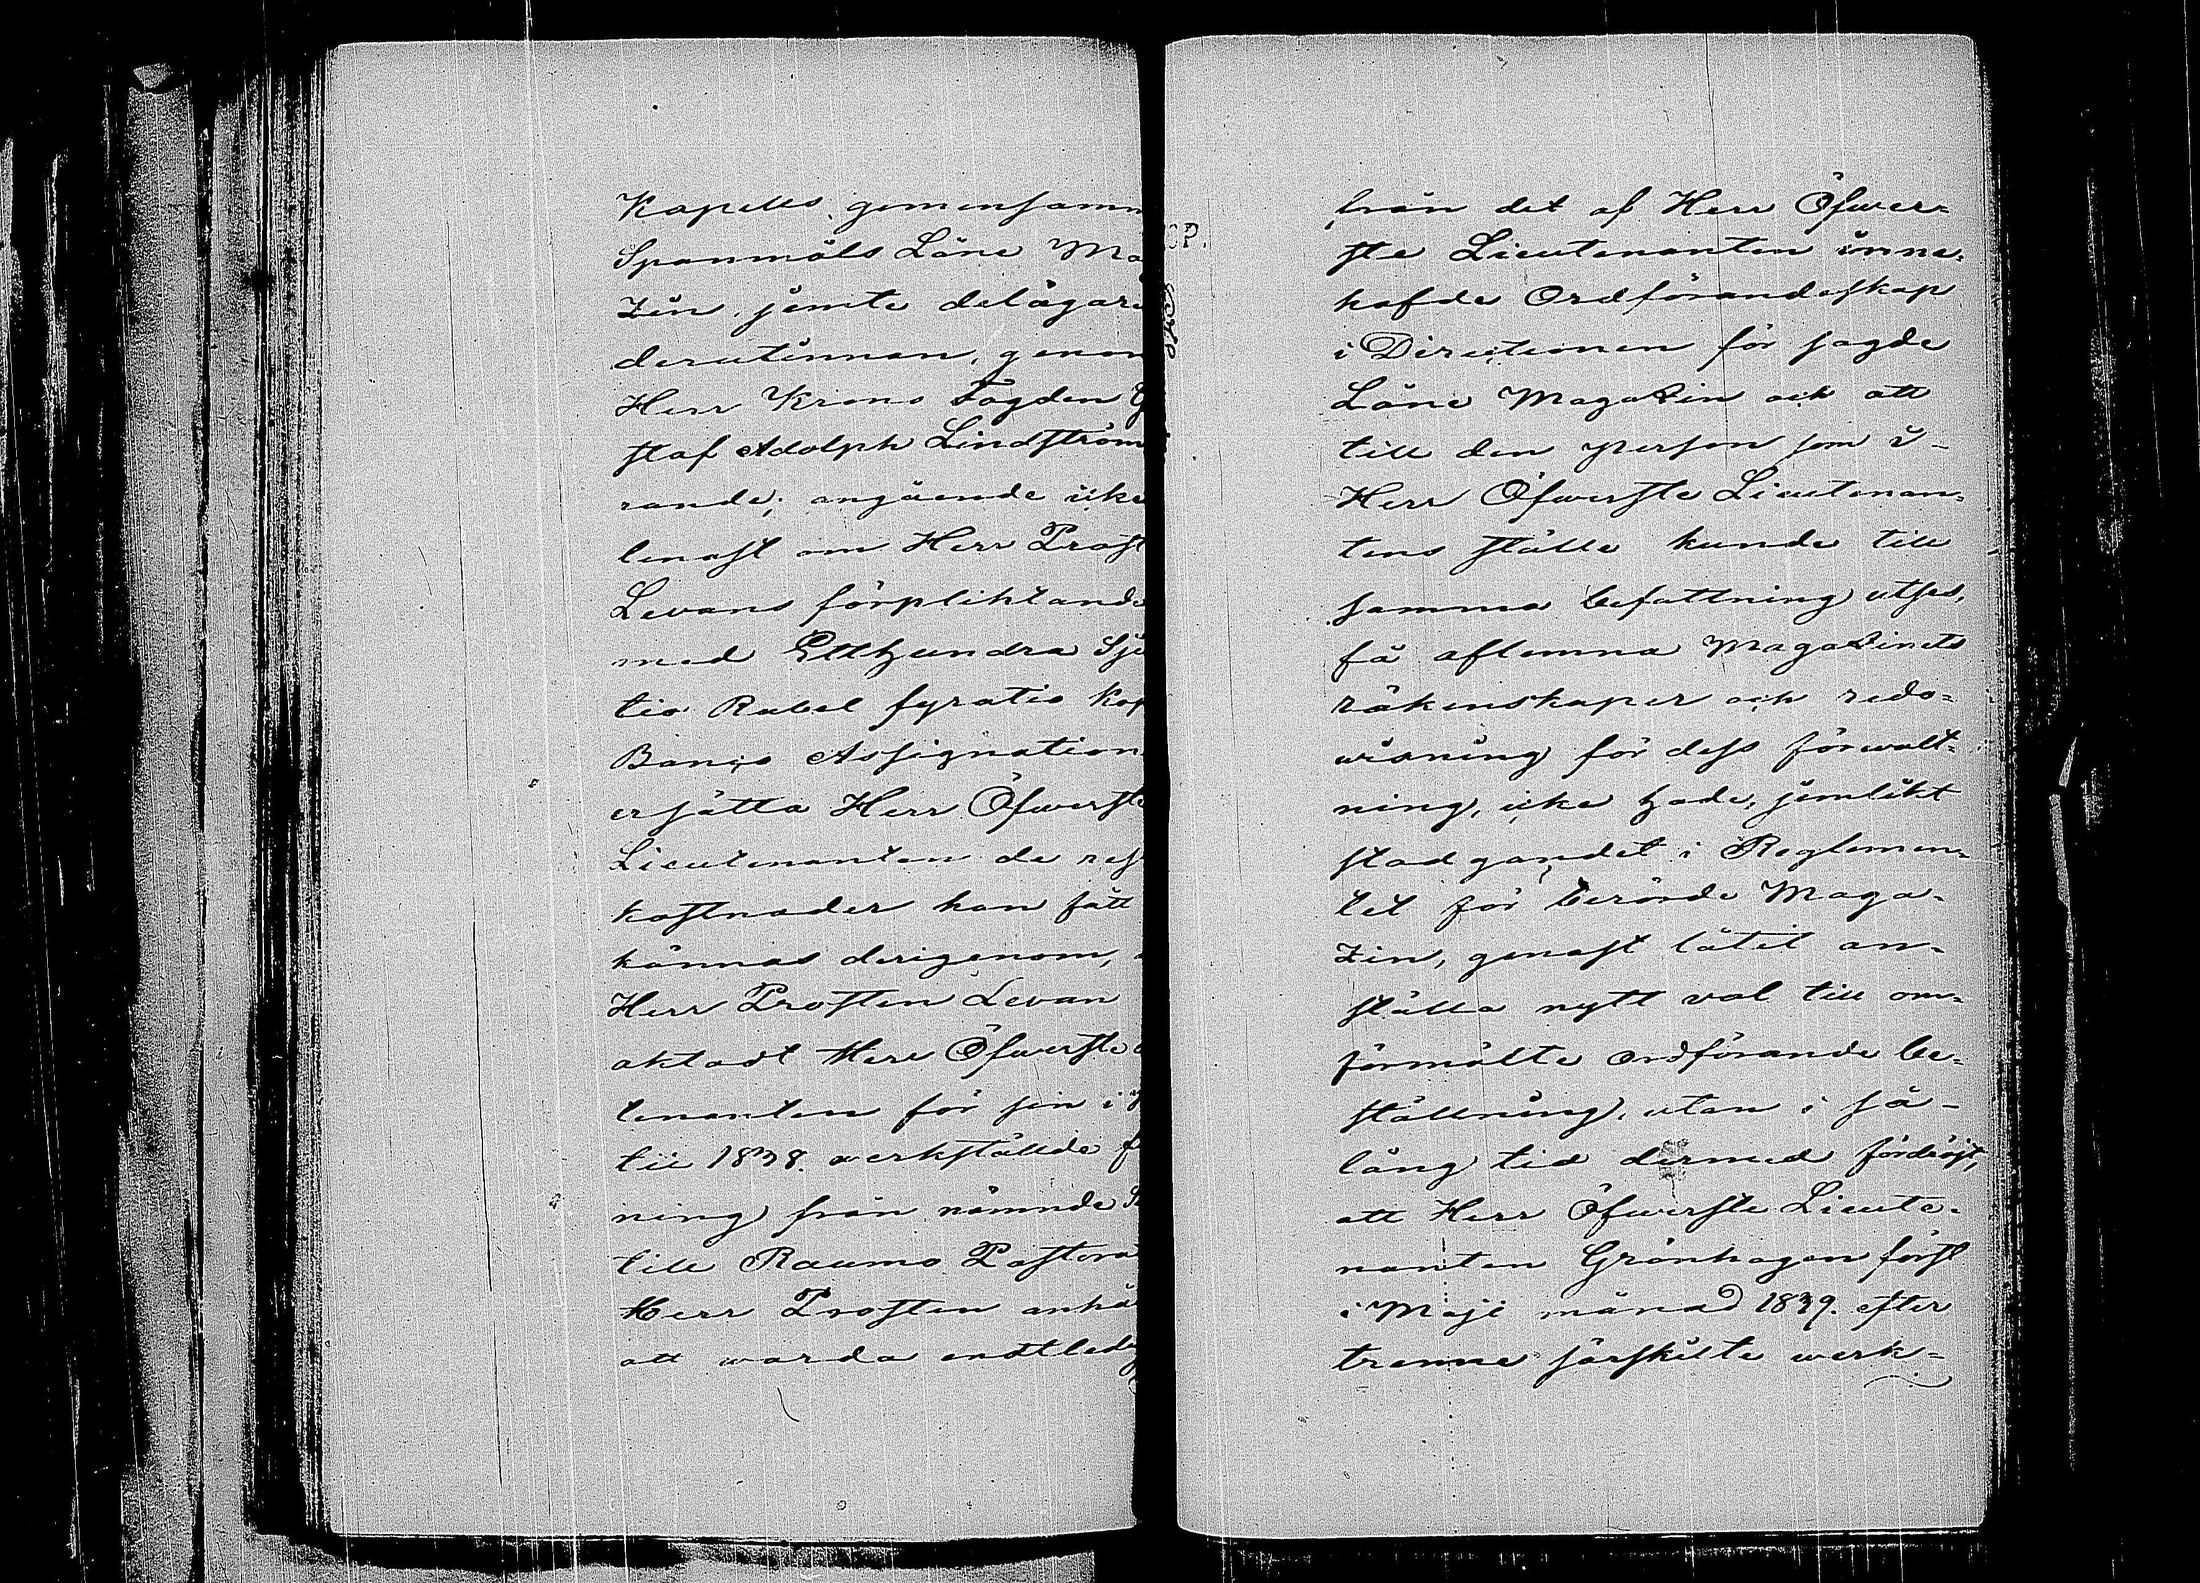 Kapells gemensamm
Spanmåls Låne Ma
zin, jemte delägare
derutinnan, genom
Herr Krono Fogden G
staf Adolph Lindström
rande; angående icke
lenast om Herr Prost
Levans förpliktande
med Etthundra Sju
tio Rubel fyratio Kop
Banco Assignation
ersätta Herr Öfverste
Lieutenanten de res
kostnader han fått
kännas derigenom,
Herr Prosten Levan
aktadt Herr Öfwerste
tenanten för sin i
tii 1838. werkställde f
ning från nämnde
till Raumo Pastora
Herr Prosten anhå
att warda entledg
från det af Herr Öfwer=
ste Lieutenanten inne=
hafde Ordförandeskap
i Directionen för sagde
Låne Magazin och att
till den person som i
Herr Öfwerste Lieutenan=
tens ställe kunde till
samma befattning utses,
få aflemna Magazinets
räkenskaper och redo=
wisning för dess förwalt=
ning, icke hade, jemlikt
stadgandet i Reglemen=
tet för berörde Maga=
zin, genast låtit an=
ställa nytt val till om=
förmälte ordförande be=
ställning, utan i så=
lång tid dermed fördröjt,
att Herr Öfwerste Lieute=
nanten Grönhagen först
i Maji månad 1839. efter
trenne särskilte werk=